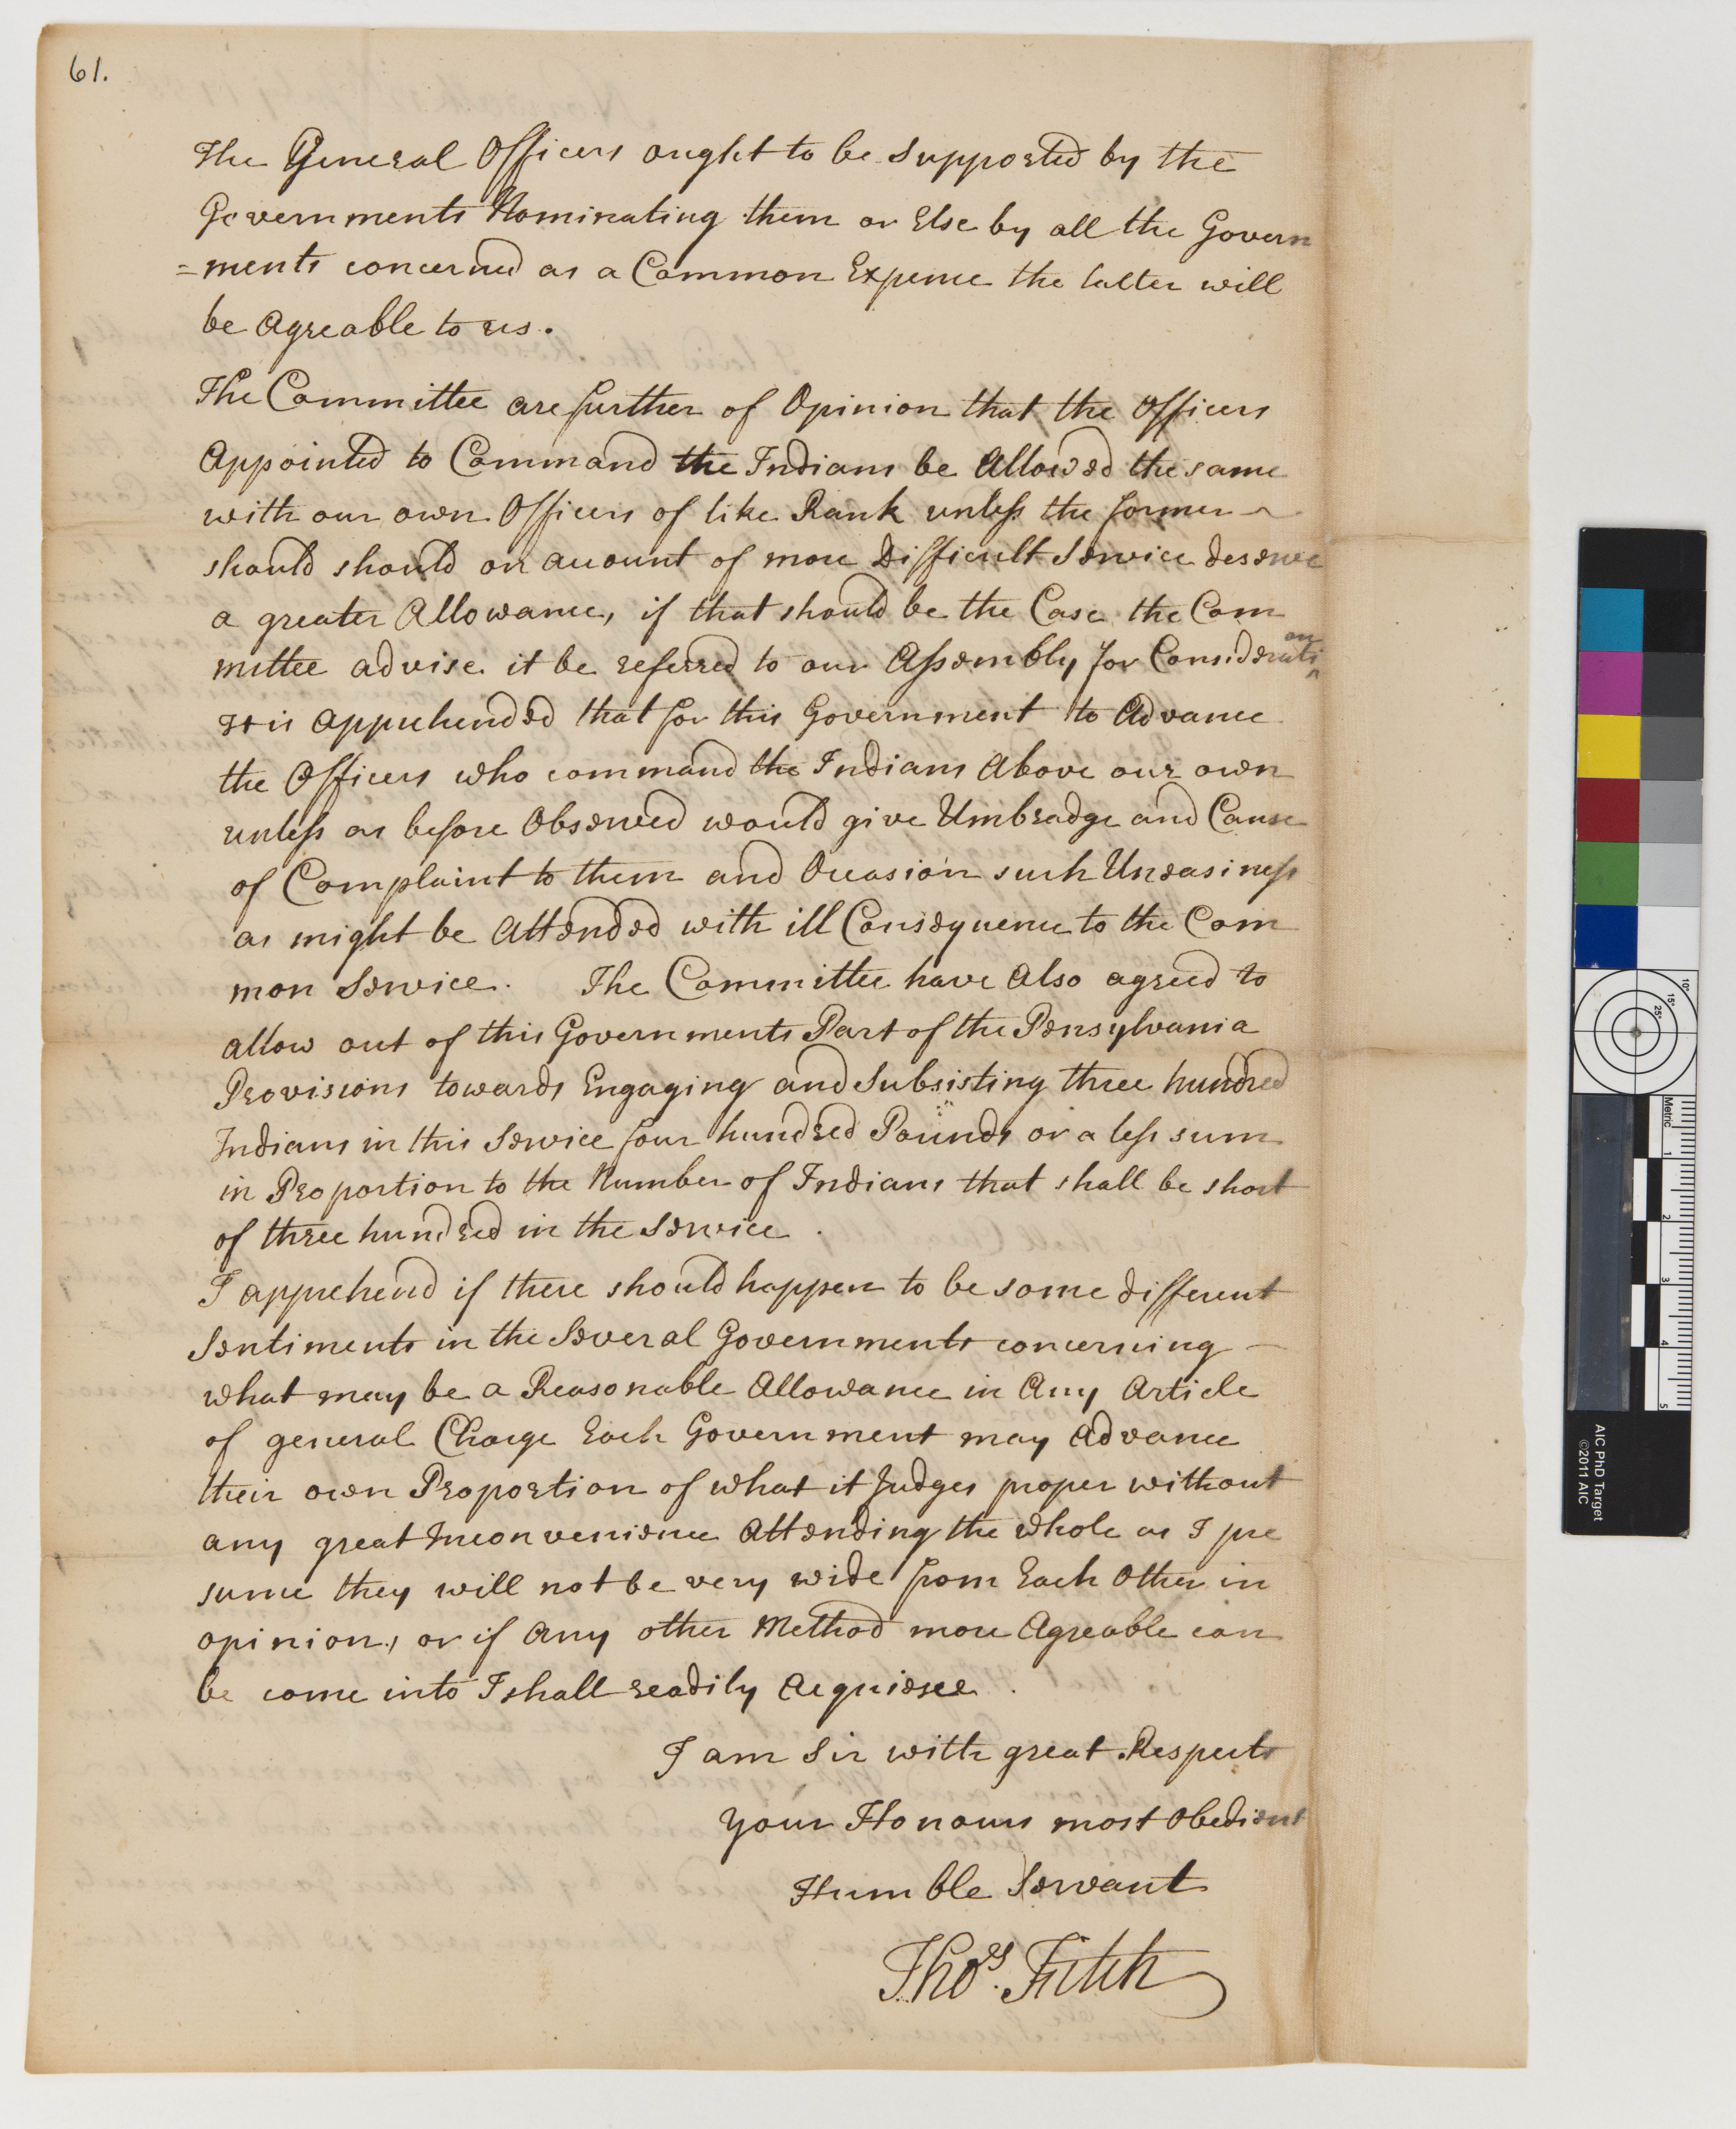 61.
The General Officers ought to be Supported by the
Governments Nominating them or Else by all the Govern
=ments concerned as a Common Expence the latter will
be Agreable to us.
The Committee are further of Opinion that the Officers
Appointed to Command the Indians be Allowed the same
with our own Officers of like Rank unless the former
should should on account of more Difficult Service deserve
a greater Allowance, if that should be the Case the Com
mittee advise it be referred to our Assembly for Consideration
It is Apprehended that for this Government to Advance
the Officers who command the Indians Above our own
unless as before Observed would give Umbradge and Cause
of Complaint to them and Occasion such Uneasiness
as might be Attended with ill Consequence to the Com
mon Service. The Committee have Also agreed to
allow out of this Governments Part of the Pensylvania
Provisions towards Engaging and Subsisting three hundred
Indians in this Service four hundred Pounds or a less sum
in Proportion to the Number of Indians that shall be short
of three hundred in the Service.
I apprehend if there should happen to be some different
Sentiments in the Several Governments concerning
what may be a Reasonable Allowance in Any Article
of general Charge Each Government may Advance
their own Proportion of what it Judges proper without
any great Inconvenience Attending the whole as I pre
sume they will not be very wide from Each Other in
opinion, or if Any other Method more Agreable can
be come into I shall readily Acquiesce.
I am Sir with great Respects
your Honours most Obedient
Humble Servant
Thos. Fitch
10°
15°
25°
Metric
1
2
3
4
5
AIC PhD Target
©2011 AIC